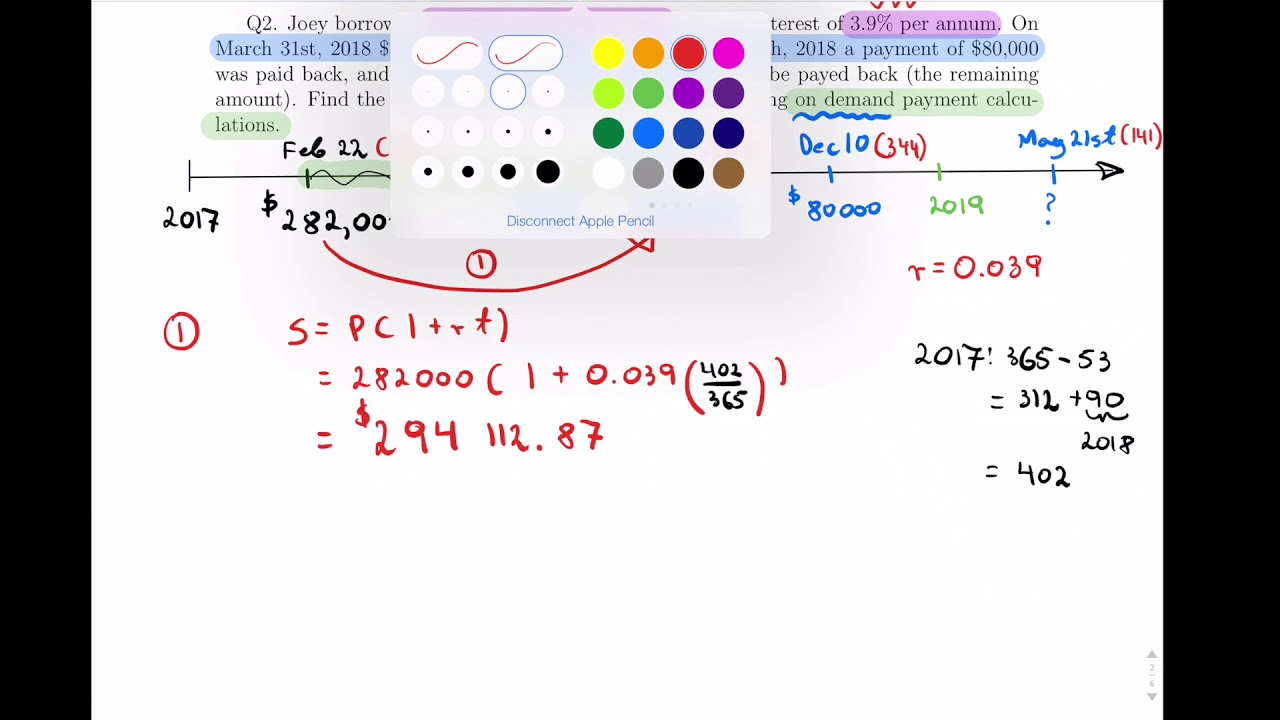 Q2. Joey borrow terest of 3.9% per annum. On
March 31st, 2018 $ h, 2018 a payment of $80,000
was paid back, and be payed back (the remaining
amount). Find the g on demand payment calcu-
lations.
Disconnect Apple Pencil
Feb 22 (
Dec 10 (344)
May 21st (141)
2017
$ 282,00
$ 80000
2019
?
①
r = 0.039
① S = P(1 + r t)
= 282000 ( 1 + 0.039 (402/365) )
= $294 112.87
2017: 365 - 53
= 312 + 90
2018
= 402
2
6